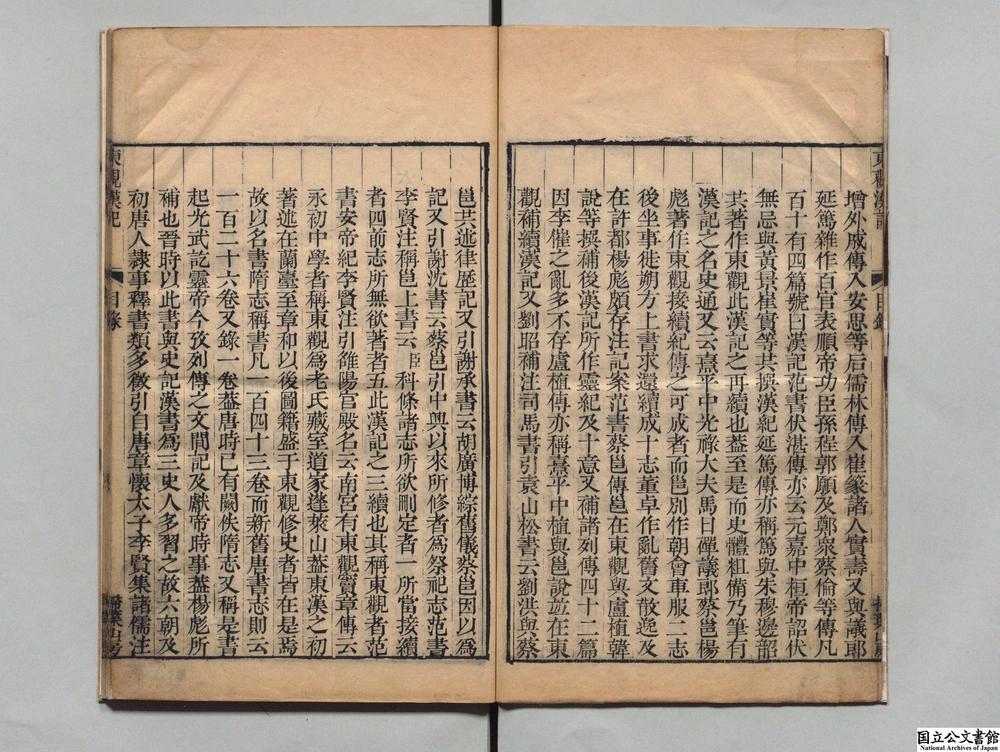 增外戚傳入安思等后儒林傳入崔篆諸人實壽又與議郎
延篤雜作百官表順帝功臣孫程郭願及鄭衆蔡倫等傳凡
百十有四篇號曰漢記范書伏湛傳亦云元嘉中桓帝詔伏
無忌與黃景崔寔等共撰漢紀延篤傳亦稱篤與朱穆邊韶
共著作東觀此漢記之再續也葢至是而史體粗備乃肇有
漢記之名史通又云熹平中光祿大夫馬日磾議郎蔡邕楊
彪著作東觀接續紀傳之可成者而邕別作朝會車服二志
後坐事徙朔方上書求還續成十志董卓作亂舊文散逸及
在許都楊彪頗存注記案范書蔡邕傳邕在東觀與盧植韓
說等撰補後漢記所作靈紀及十意又補諸列傳四十二篇
因李傕之亂多不存盧植傳亦稱熹平中植與邕說竝在東
觀補續漢記又劉昭補注司馬書引袁山松書云劉洪與蔡
東觀漢記
目錄
邕共述律歷記又引謝承書云胡廣博綜舊儀蔡邕因以爲
記又引謝沈書云蔡邕引中興以來所修者爲祭祀志范書
李賢注稱邕上書云臣科條諸志所欲刪定者一所當接續
者四前志所無欲著者五此漢記之三續也其稱東觀者范
書安帝紀李賢注引雒陽宮殿名云南宮有東觀竇章傳云
永初中學者稱東觀爲老氏藏室道家蓬萊山葢東漢之初
著述在蘭臺至章和以後圖籍盛于東觀修史者皆在是焉
故以名書隋志稱書凡一百四十三卷而新舊唐書志則云
一百二十六卷又錄一卷葢唐時已有闕佚隋志又稱是書
起光武訖靈帝今攷列傳之文閒記及獻帝時事葢楊彪所
補也晉時以此書與史記漢書爲三史人多習之故六朝及
初唐人隸事釋書類多徵引自唐章懷太子李賢集諸儒注
東觀漢記
目錄
掃葉山房
国立公文書館
National Archives of Japan